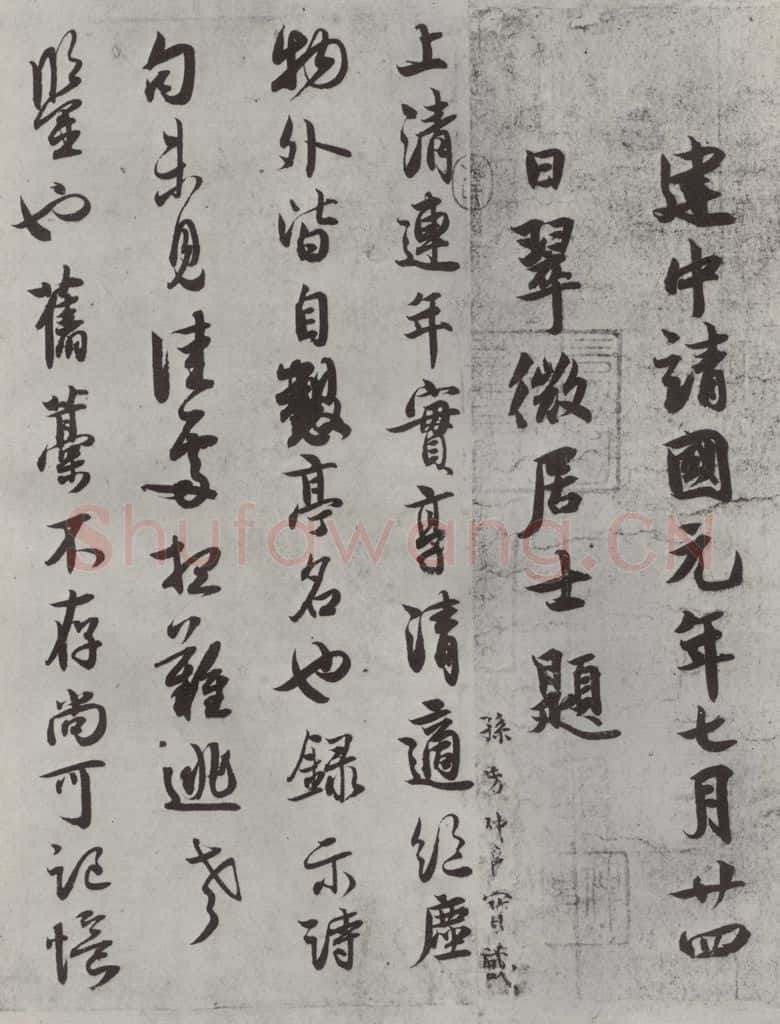 建中靖國元年七月廿四
日翠微居士題
孫 仲良寶藏
上清連年實享清適絕塵
物外皆自懃亭名也錄示詩
句未見佳處 難逃老
鑒也舊藁不存尚可記憶
Shufawang.CN